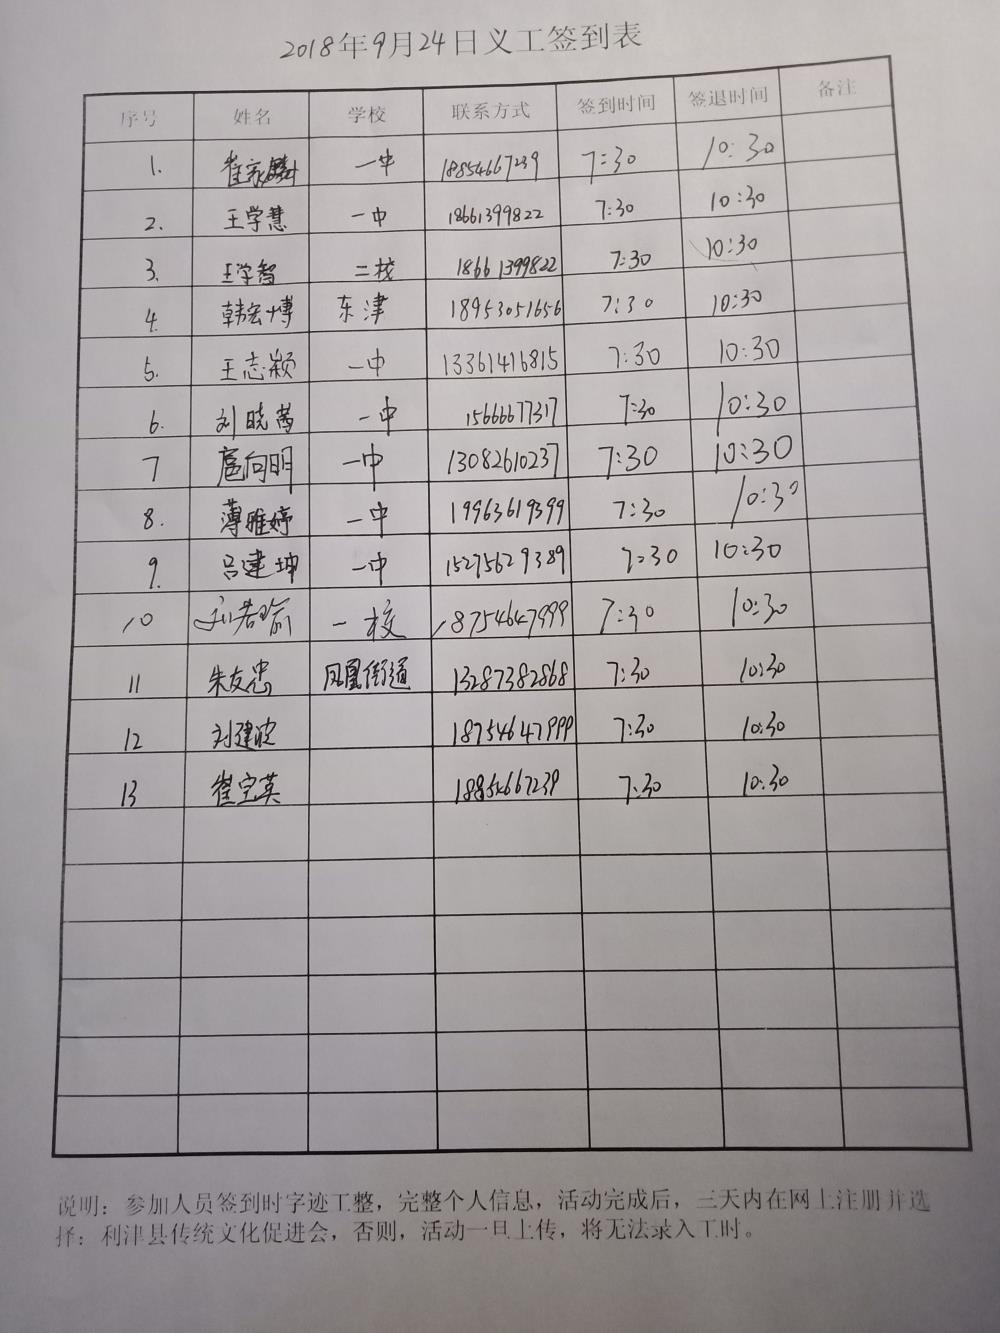 2018年9月24日义工签到表
序号 姓名 学校 联系方式 签到时间 签退时间 备注
1. 崔家麟 一中 18854667239 7:30 10:30
2. 王学慧 一中 18661399822 7:30 10:30
3. 王学智 二校 18661399822 7:30 10:30
4. 韩宏博 东津 18953051656 7:30 10:30
5. 王志颖 一中 13361416815 7:30 10:30
6. 刘晓茜 一中 15666677317 7:30 10:30
7 扈向明 一中 13082610237 7:30 10:30
8. 薄雅婷 一中 19963619399 7:30 10:30
9. 吕建坤 一中 15275629389 7:30 10:30
10 刘若瑜 一校 18754647999 7:30 10:30
11 朱友忠 凤凰街道 13287382868 7:30 10:30
12 刘建波 18754647999 7:30 10:30
13 崔宝英 18854667239 7:30 10:30
说明：参加人员签到时字迹工整，完整个人信息，活动完成后，三天内在网上注册并选
择：利津县传统文化促进会，否则，活动一旦上传，将无法录入工时。